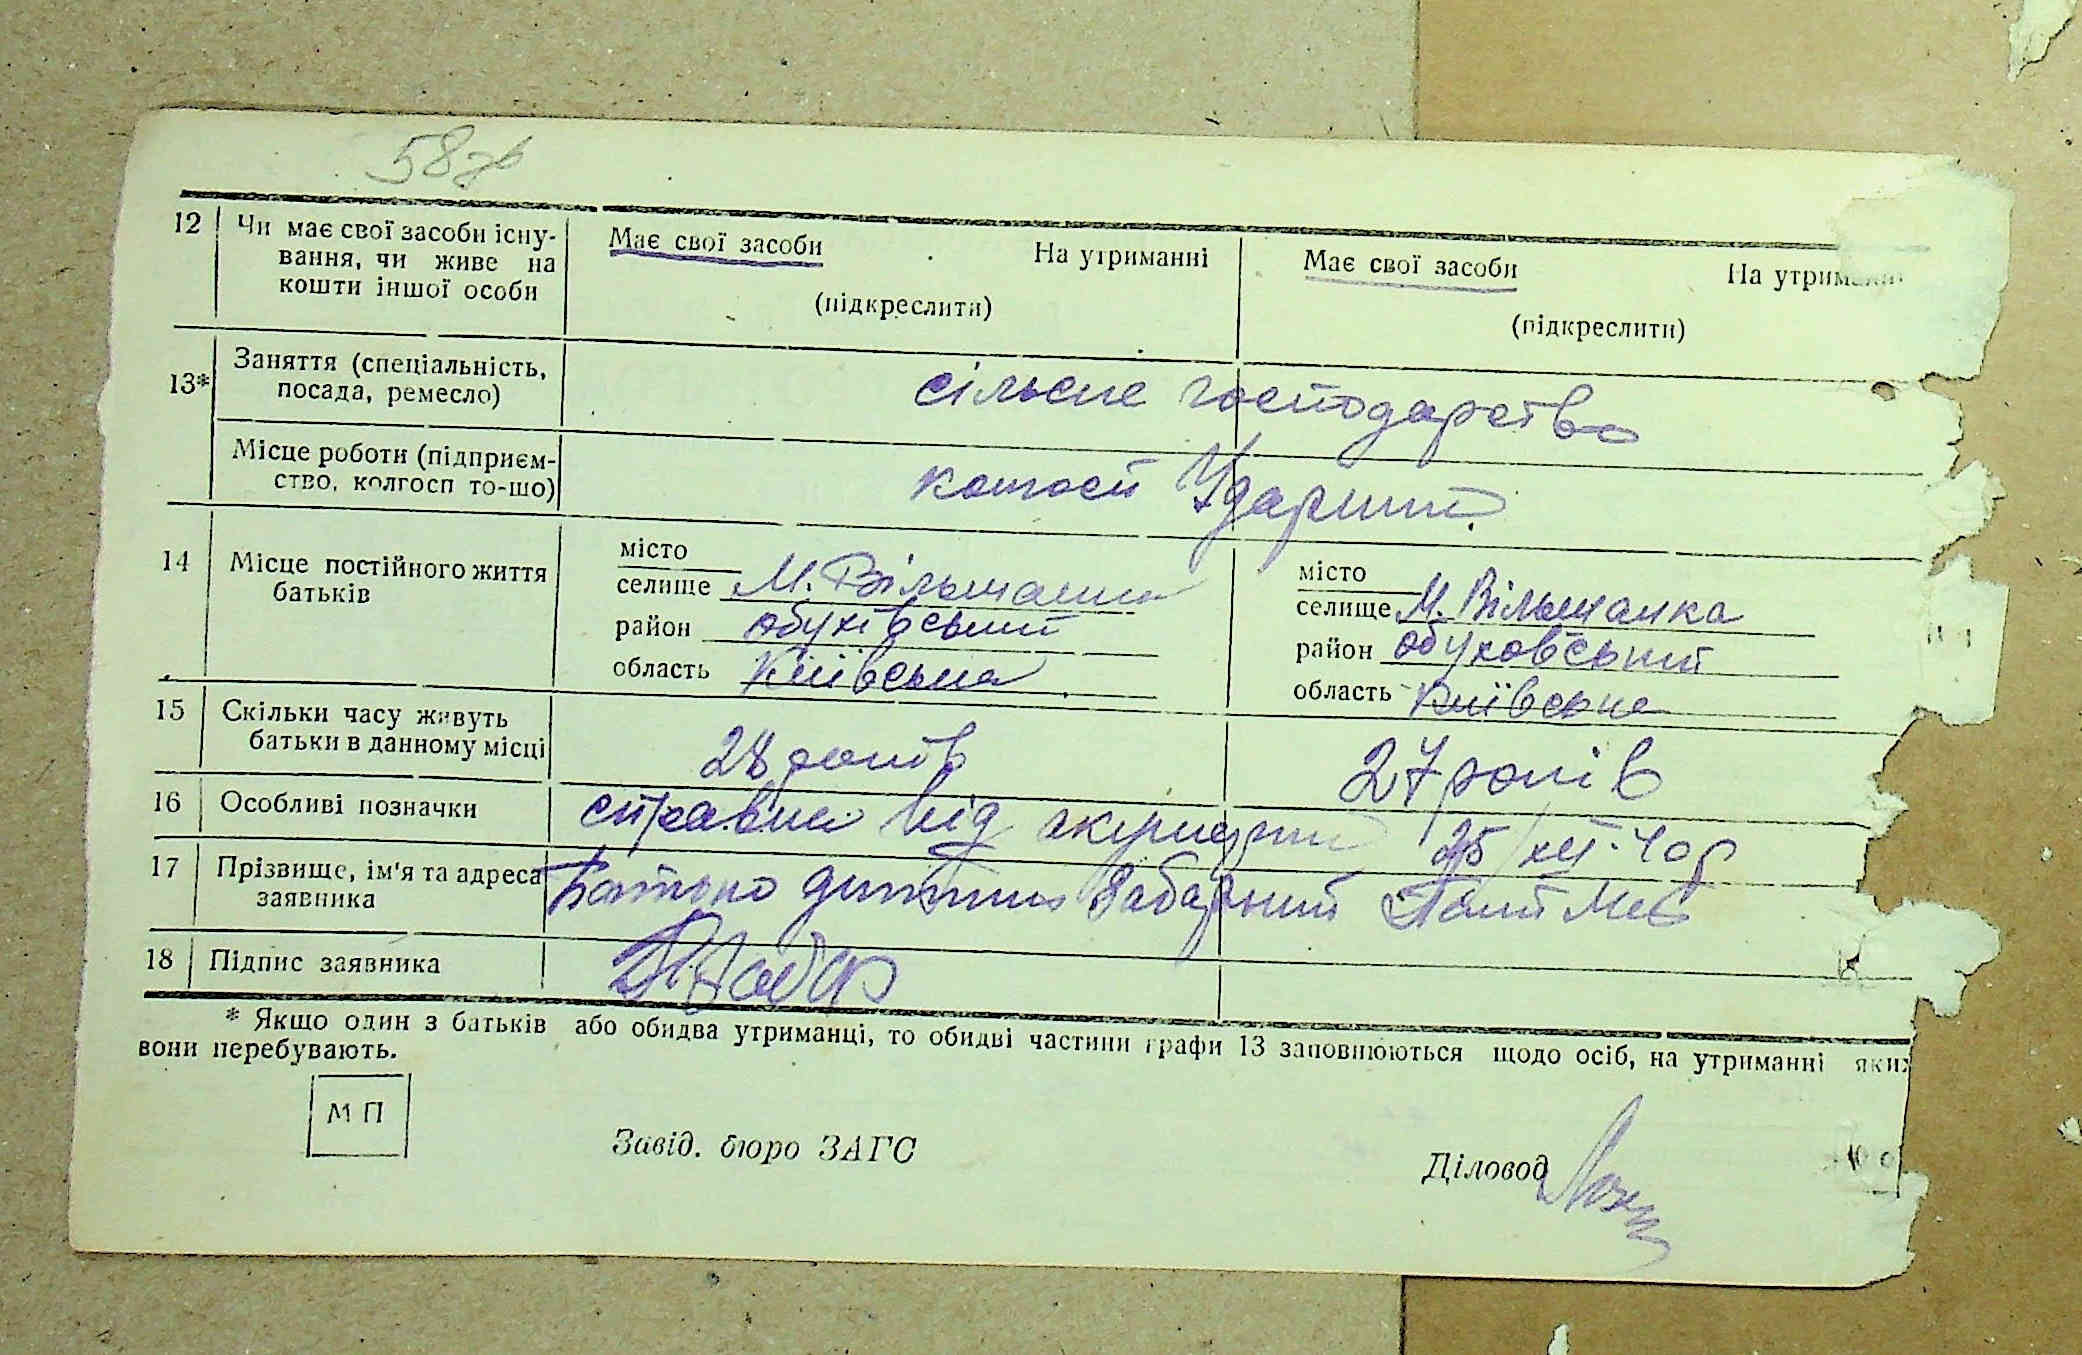 58
12 Чи має свої засоби існу-
вання, чи живе на
кошти іншої особи
Має свої засоби На утриманні
(підкреслити)
Має свої засоби На утриманні
(підкреслити)
13* Заняття (спеціальність,
посада, ремесло)
сільске господарство
Місце роботи (підприєм-
ство, колгосп то-шо)
колгосп Ударник
14 Місце постійного життя
батьків
місто
селище М. Вільшанка
район Обухівський
область Київська
місто
селище М. Вільшанка
район Обуховський
область Київська
15 Скільки часу живуть
батьки в данному місці
28 років
27 років
16 Особливі позначки
справка від акушерки 25/XII-40р
17 Прізвище, ім'я та адреса
заявника
Батько дитини Забарний
18 Підпис заявника
* Якщо один з батьків або обидва утриманці, то обидві частини графи 13 заповнюються щодо осіб, на утриманні яких
вони перебувають.
М П
Завід. бюро ЗАГС
Діловод